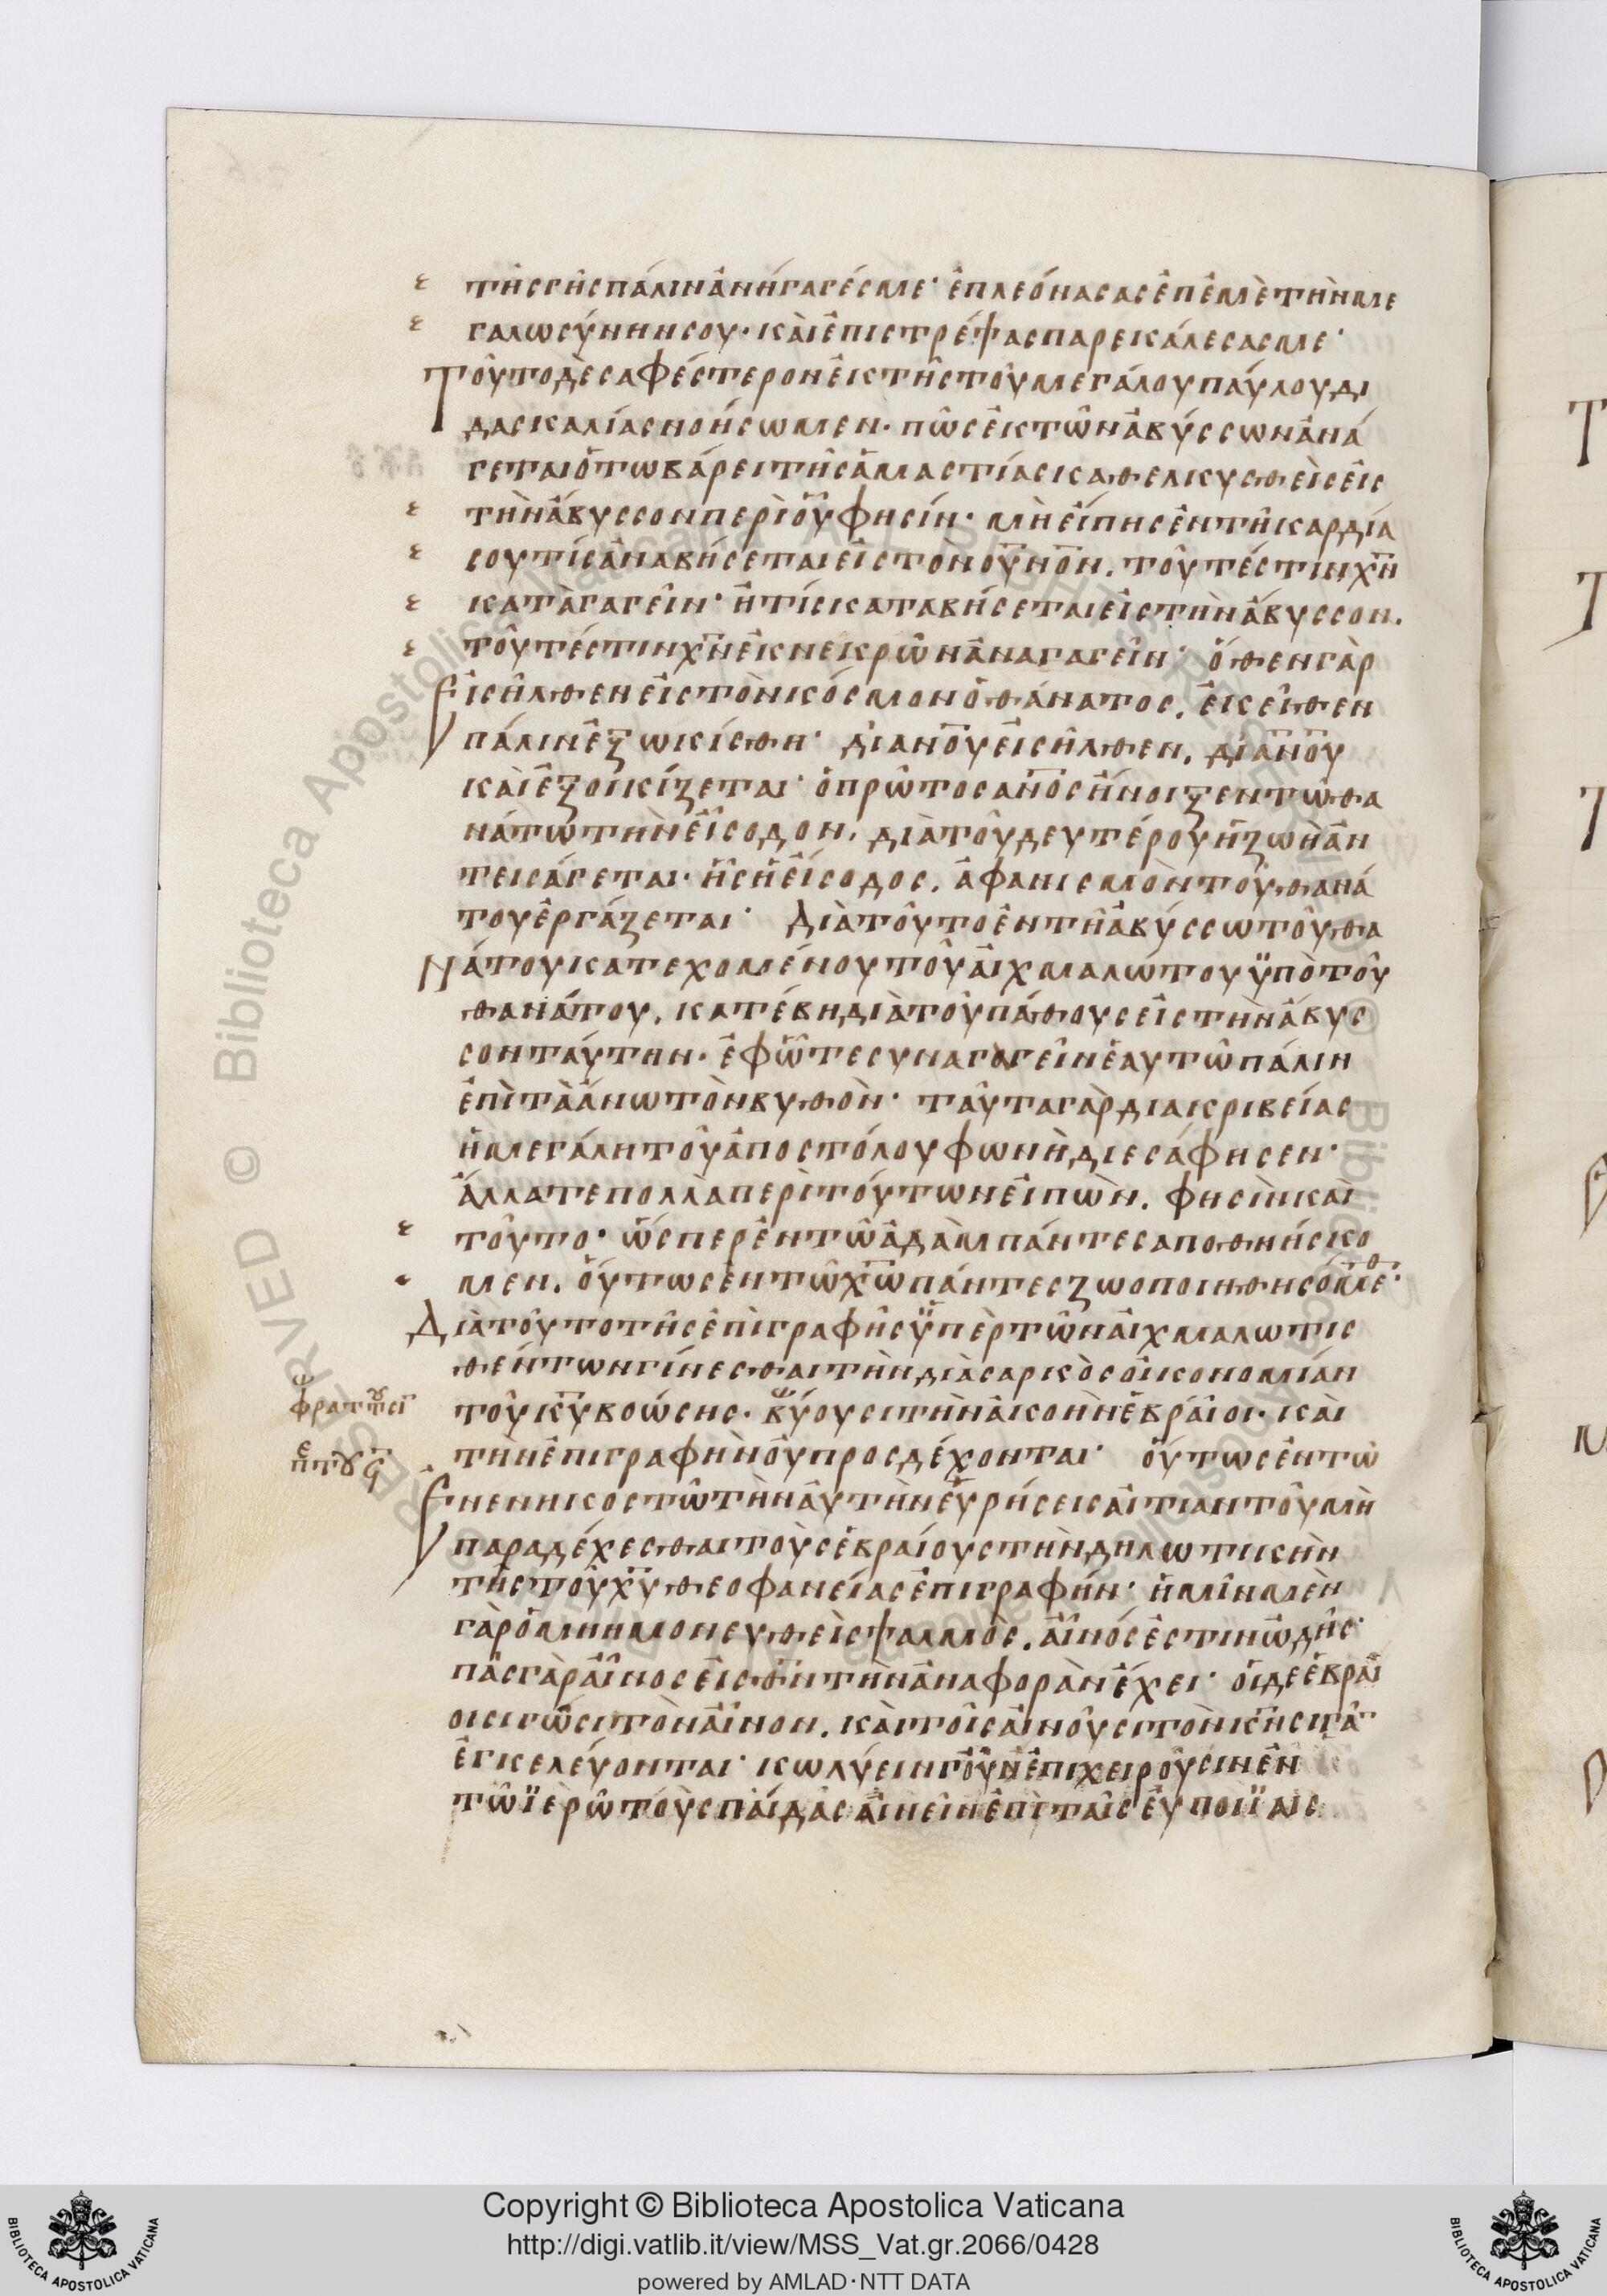 τῆς γῆς πάλιν ἀνήγαγές με· ἐπλεόνασας ἐπ ἐμὲ τὴν με
γαλωσύνην σου· καὶ ἐπιστρέψας παρεκάλεσάς με·
Τοῦτο δὲ σαφέστερον ἐκ τῆς τοῦ μεγάλου παύλου δι
δασκαλίας νοήσωμεν· πῶς ἐκ τῶν ἀβύσσων ἀνά
γεται ὁ τω βάρει τῆς ἁμαρτίας καθελκυσθεὶς εἰς
τὴν ἄβυσσον περὶ οὗ φησίν· μὴ εἴπης ἐν τῆ καρδία
σου τίς ἀναβήσεται εἰς τὸν οὐνον. τοῦτέστιν χν
καταγαγεῖν· ἢ τίς καταβήσεται εἰς τὴν ἄβυσσον.
τοῦτέστιν χν ἐκ νεκρῶν ἀναγαγεῖν· ὅθεν γὰρ
εἰσῆλθεν εἰς τὸν κόσμον ὁ θάνατος, ἐκεῖθεν
πάλιν ἐξωκίσθη· δι ανου εἰσῆλθεν, δι ανου
καὶ ἐξοικίζεται· ὁ πρῶτος ανος ἤνοιξεν τῶ θα
νάτω τὴν εἴσοδον, διὰ τοῦ δευτέρου ἡ ζωὴ ἀν
τεισάγεται· ἧς ἡ εἴσοδος, ἀφανισμὸν τοῦ θανά
του ἐργάζεται· Διὰ τοῦτο ἐν τῆ ἀβύσσω τοῦ θα
νάτου κατεχομένου τοῦ αἰχμαλώτου ὑπὸ τοῦ
θανάτου, κατέβη διὰ τοῦ πάθους εἰς τὴν ἄβυς
σον ταύτην· ἐφ ὧτε συναγαγεῖν ἑαυτῶ πάλιν
ἐπὶ τὰ ἄνω τὸν βυθὸν· ταῦτα γὰρ δι ακριβείας
ἡ μεγάλη τοῦ ἀποστόλου φωνὴ διεσάφησεν·
ἄλλα τε πολλὰ περὶ τούτων εἰπὼν, φησὶν καὶ
τοῦτο· ὥσπερ ἐν τῶ ἀδὰμ πάντες αποθνήσκο
μεν, οὕτως ἐν τῶ χω πάντες ζωοποιηθησόμεθ·
Διὰ τοῦτο τῆς ἐπιγραφῆς ὑπὲρ τῶν αἰχμαλωτις
θέντων γίνεσθαι τὴν διὰ σαρκὸς οἰκονομίαν
τοῦ κυ βοώσης· βύουσι τὴν ἀκοὴν ἑβραῖοι· καὶ
τὴν ἐπιγραφὴν οὐ προσδέχονται· οὕτως ἐν τῶ
ἐνενηκοστῶ τὴν αὐτὴν εὑρήσεις αἰτίαν τοῦ μὴ
παραδέχεσθαι τοὺς ἑβραίους τὴν δηλωτικὴν
τῆς τοῦ χυ θεοφανείας ἐπιγραφήν· ἡμῖν μὲν
γὰρ ὁ μνημονευθεὶς ψαλμὸς, αἶνός ἐστιν ὠδῆς·
πᾶς γὰρ αἶνος εἰς θν τὴν ἀναφορὰν ἔχει· οἱ δε ἑβραῖ
οι σιγῶσι τὸν αἶνον, καὶ τοῖς αἰνοῦσι τὸν κν σιγᾶ
ἐγκελεύονται· κωλύειν γοῦν ἐπιχειροῦσιν ἐν
τῶ ἱερῶ τοὺς παίδας αἰνεῖν ἐπὶ ταῖς εὐποιΐαις